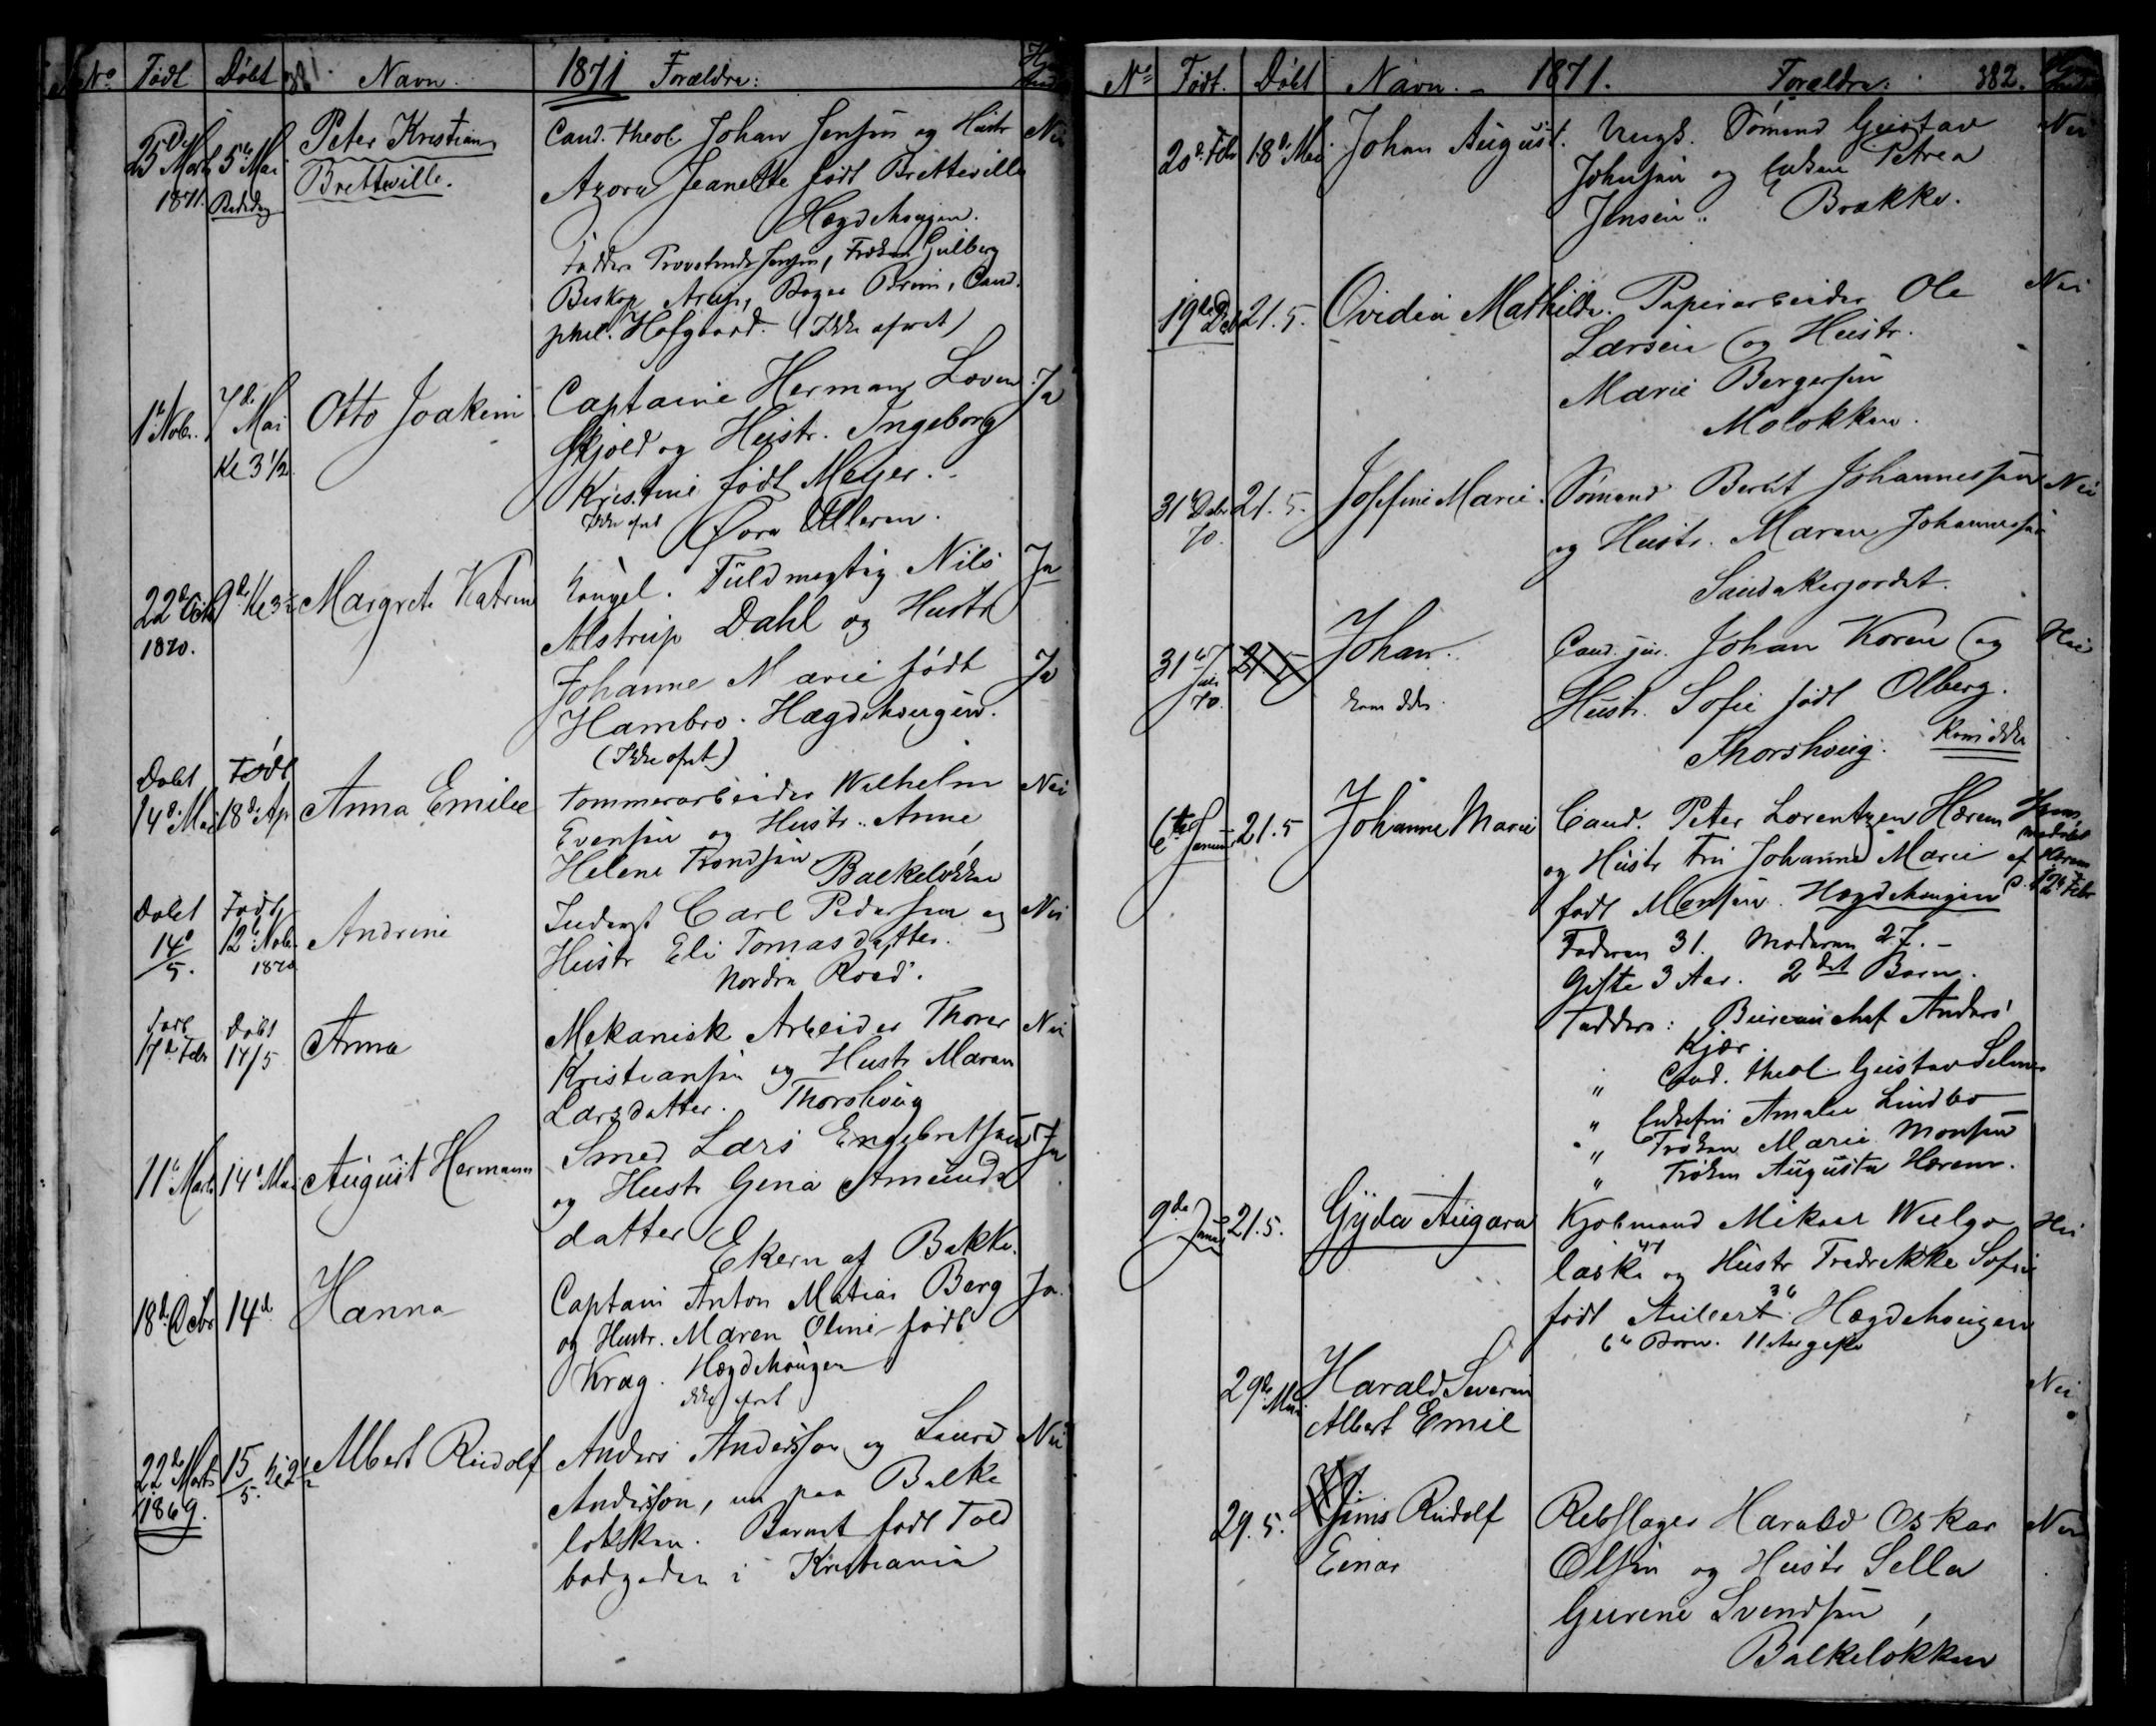 No. Født Døbt 381. Navn. 1871 Forældre:
25de Marts 1871. 5te Mai Bededag
Peter Kristian
Brettville.
Cand. theol. Johan Jensen og Hustr Nei
Azora Jeanette født Bretteville
Hægdehougen.
Faddere Provstinde Jensen, Frøken Gulberg
Biskop Arup, Cand.
phil. Hofgaard. (Ikke ofret)
1te Nobr. 7de Mai Kl 3 1/2
Otto Joakim
Captaine Herman Løven Ja
skjold og Hustr. Ingeborg
Kristine født Meyer.
Ikke ofret Øvre Ulleren.
22de Octb 1870. 9de Kl 3 1/2
Margrete Katrine
Kongel. Fuldmægtig Nils Ja
Alstrup Dahl og Hustr
Johanne Marie født Ja
Hambro. Hægdehougen.
(Ikke ofret)
Døbt Født
14de Mai 18de Ap
Anna Emilie
Tømmerarbeider Wilhelm Nei
Evensen og Hustr. Anne
Helene Trondsen
Balkeløkken
Døbt 14de/5. Født 12te Nobr. 1870
Andrine
Inderst Carl Pedersen og Nei
Hustr Eli Tomasdatter.
Nordre Roed.
Født 17de Febr Døbt 14/5
Anna
Mekanisk Arbeider Thorer Nei
Kristiansen og Hustr Maren
Larsdatter. Thorshoug
11te Marts 14de Mai
August Hermann
Smed Lars Engebretsen Ja
og Hustr Gina Amunds
datter
Ekern af Bakke.
18de Octbr 14de
Hanna
Captain Anton Matias Berg Ja.
og Hustr. Maren Oline født
Krag. Hægdehougen
ikke ofret
22de Marts 1869. 15/5. Kl 2 1/2
Albert Rudolf
Anders Andersson og Laura Nei
Andersson, nu paa Balke
løkken. Barnet født Told
bodgaden i Kristiania
No. Født. Døbt Navn. - 1871. Forældre: 382.
20de Febr 18de Mai
Johan August.
Ungk. Sømand Gustav Nei
Johnsen og Enken Petrea
Jensen. Brække.
19de Deb 21.5.
Ovidia Mathilde.
Papirarbeider Ole Nei
Larsen og Hustr.
Marie Bergersen
Moløkken.
31te Debr 70. 21.5.
Josefine Marie.
Sømand Berut Johannessen Nei
og Hustr. Maren Johannessen
Sandakerjordet.
31te Jan 70. 21.5
Johan.
kom ikke
Cand. jur. Johan Koren og Nei
Hustr. Sofie født Olberg.
Thorshoug. Kom ikke
6te Januar 21.5
Johanne Marie
Cand. Peter Lorentzen Hærem Hjemmedøbt
og Hustr Fru Johanne Marie af Hærem
født Monsen. Hægdehougen d. 12te Febr
Faderen 31. Moderen 27. -
Gifte 3 Aar. 2det Barn.
Faddere: Bureauchef Anders
Kjær.
" Cand. theol. Gustav Selmer
" Enkefru Amalie Lindbo
" Frøken Marie Monsen
" Frøken Augusta Hærem.
9de Janu 21.5.
Gyda Augara
Kjøbmand Mikael Wulgo Nei
laski 47 og Hustr Fredrikke Sofie
født Aubert 36. Hægdehougen
6te Barn. 11 Aar gifte
29de Mai
Harald Severin
Albert Emil
Nei
29.5.
Jens Rudolf
Einar
Rebslager Harald Oskar Nei
Olsen og Hustr Sella
Gurine Svendsen,
Balkeløkken